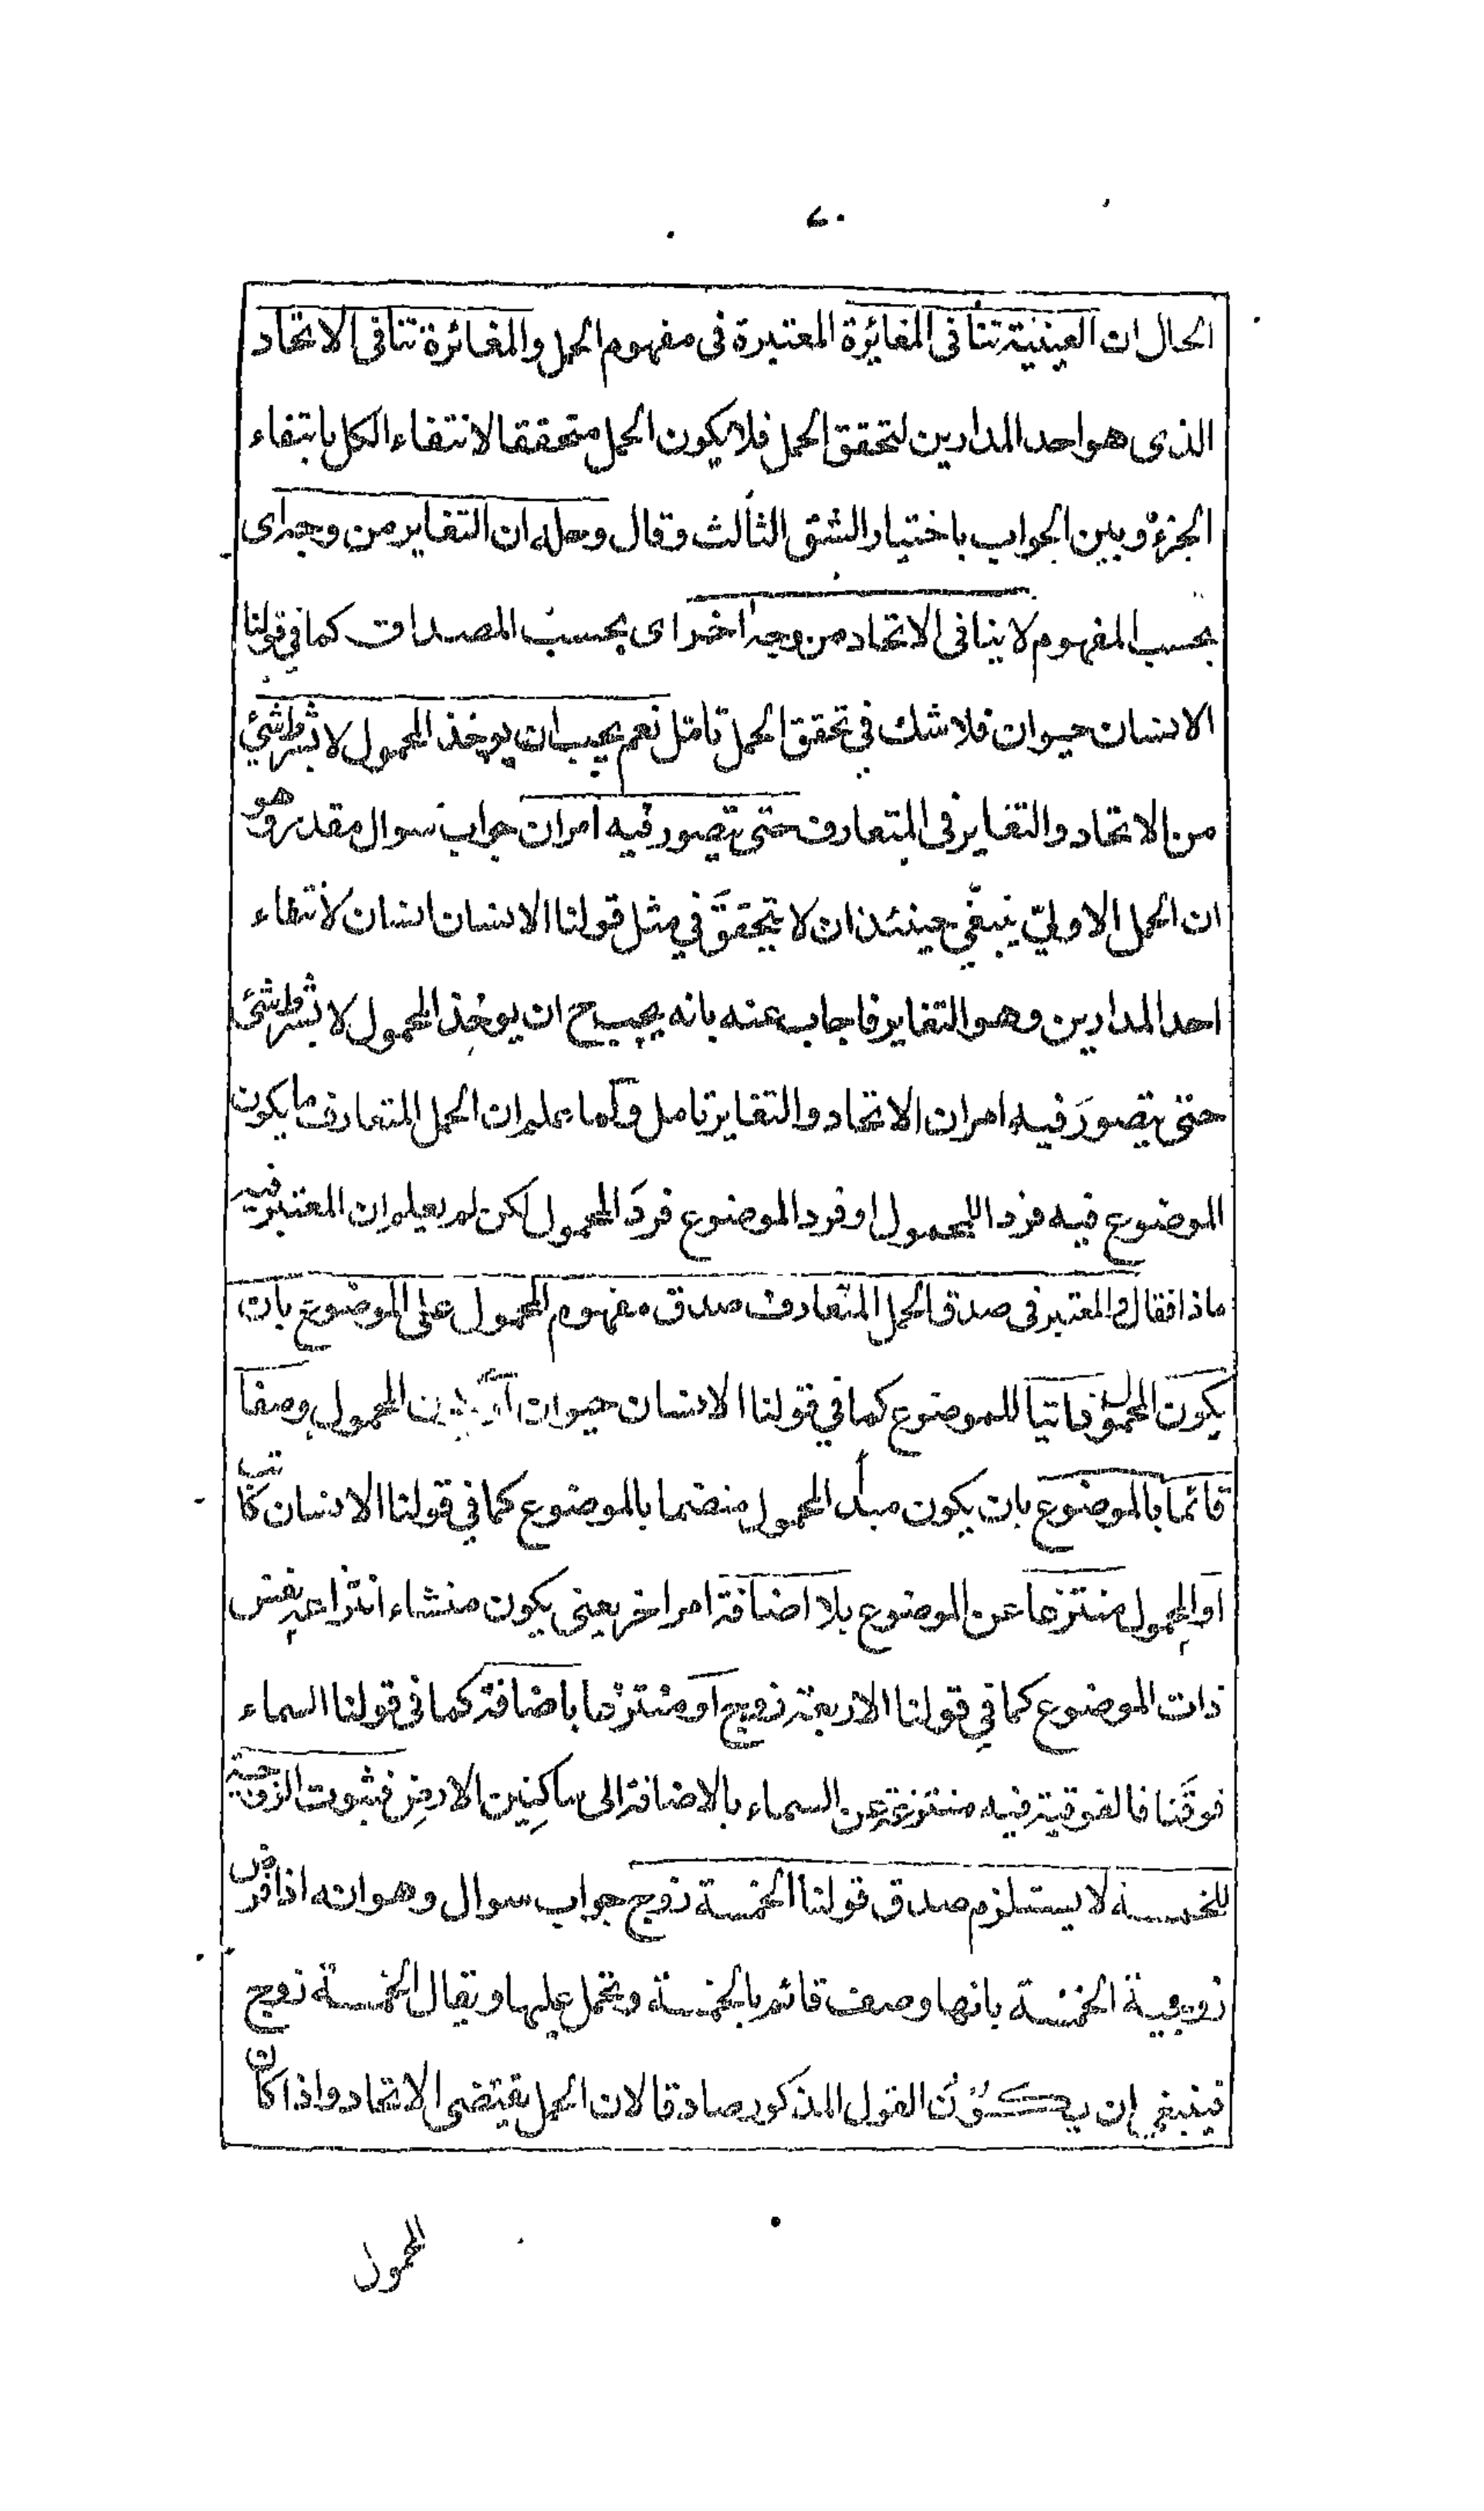 ٧٠
الحال ان العينية تنافى المغائرة المعتبرة فى مفهوم الحمل والمغائرة تنافى الاتحاد
الذى هو احد المدارين لتحقق الحمل فلا يكون الحمل متحققا لانتفاء الكل بانتفاء
الجزء وبين الجواب باختيار الشق الثالث وقال وحله ان التغاير من وجه اى
بحسب المفهوم لا ينافى الاتحاد من وجه اخر اى بحسب المصداق كما في قولنا
الانسان حيوان فلا شك في تحقق الحمل تامل نعم يجب ان يوخذ المحمول لا بشرط شئ
من الاتحاد والتغاير فى المتعارف حتى يتصور فيه امران جواب سوال مقدر وهو
ان الحمل الاولي ينبغي حينئذ ان لا يتحقق في مثل قولنا الانسان انسان لانتفاء
احد المدارين وهو التغاير فاجاب عنه بانه يجب ح ان يوخذ المحمول لا بشرط شئ
حتى يتصور فيه امران الاتحاد والتغاير تامل ولما علم ان الحمل المتعارف ما يكون
الموضوع فيه فرد المحمول او فرد الموضوع فرد المحمول لكن لم يعلم ان المعتبر فيه
ماذا فقال والمعتبر فى صدق الحمل المتعارف صدق مفهوم المحمول على الموضوع بان
يكون المحمول ذاتيا للموضوع كما في قولنا الانسان حيوان المحمول وصفا
قائما بالموضوع بان يكون مبدأ المحمول منضما بالموضوع كما في قولنا الانسان كاتب
او المحمول منتزعا عن الموضوع بلا اضافة امر اخر يعنى يكون منشاء انتزاعه نفس
ذات الموضوع كما في قولنا الاربعة زوج او منتزعا باضافة كما فى قولنا السماء
فوقنا فالفوقية فيه منتزعة عن السماء بالاضافة الى ساكنين الارض فثبوت الزوجية
للخمسة لا يستلزم صدق قولنا الخمسة زوج جواب سوال وهو انه اذا فرض
زوجية الخمسة بانها وصف قائم بالخمسة وتحمل عليها ويقال الخمسة زوج
فينبغي ان يكون القول المذكور صادقا لان الحمل يقتضى الاتحاد واذا كان
المحمول